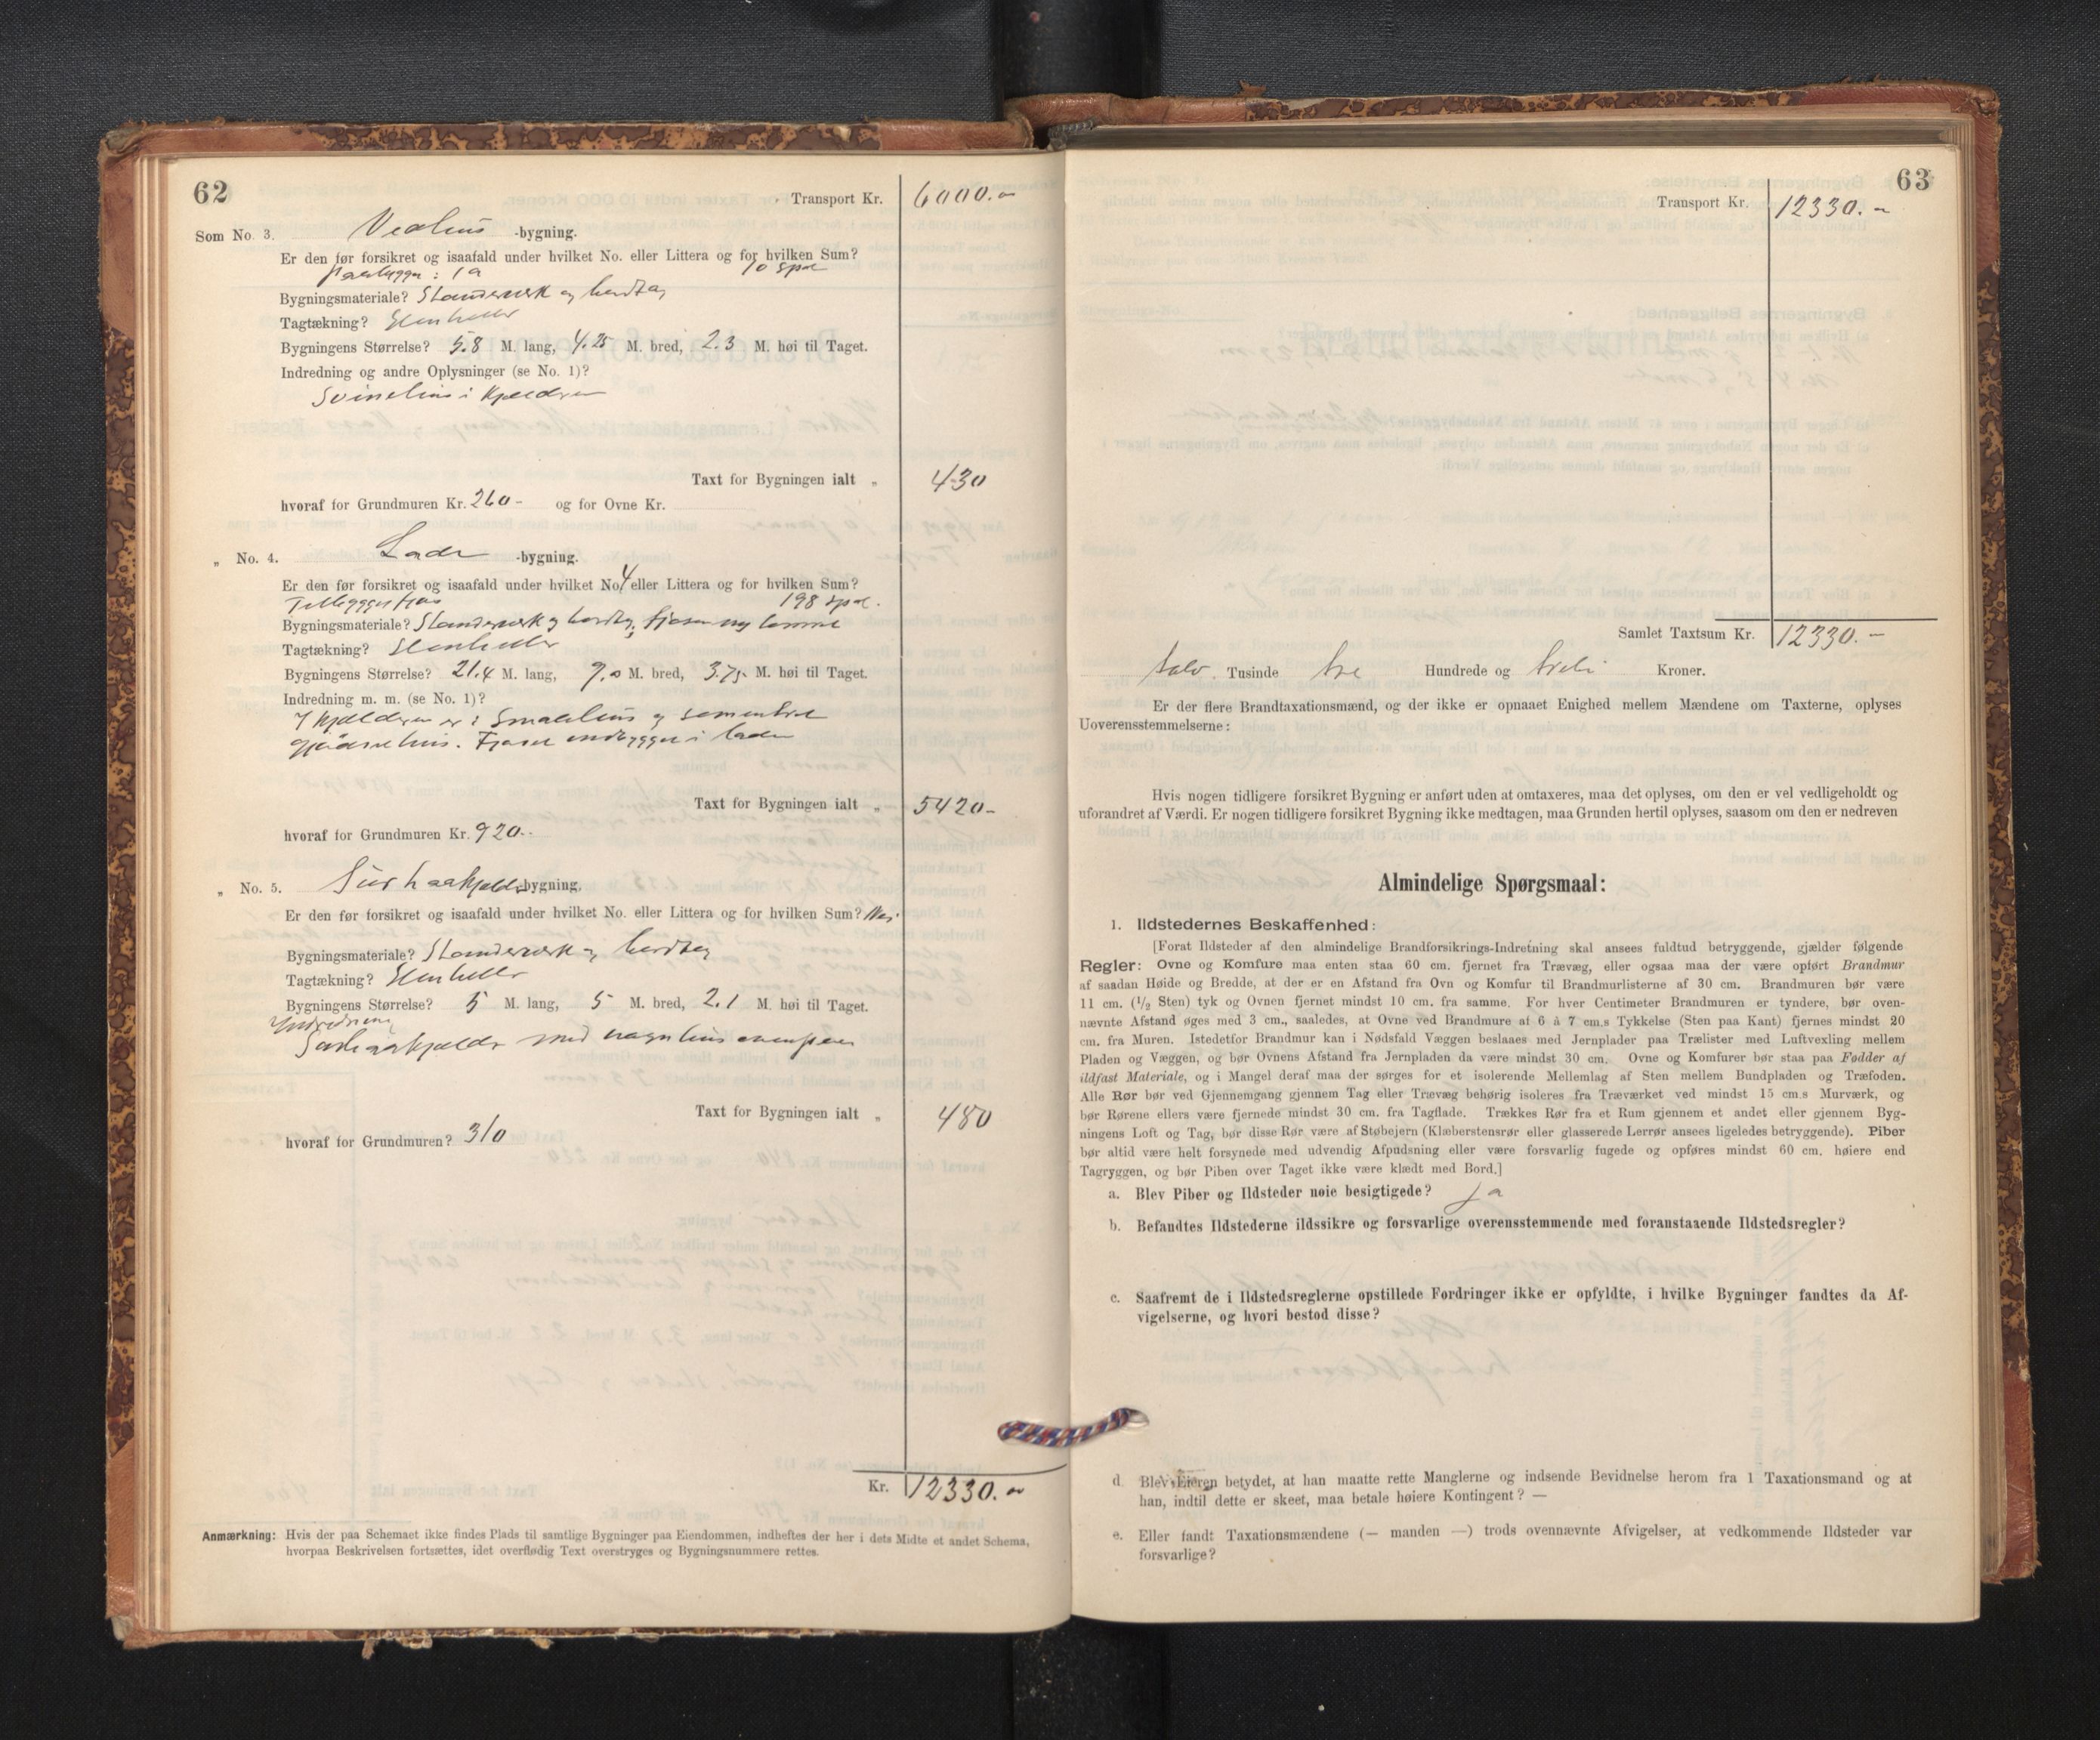 62
Transport Kr. 6000.-
Som No. 3. Vedhus -bygning.
Er den før forsikret og isaafald under hvilket No. eller Littera og for hvilken Sum?
Paabygget : 1a 70 spd
Bygningsmateriale? Standerverk og bordtag
Tagtækning? Stenheller
Bygningens Størrelse? 5.8 M. lang, 4.25 M. bred, 2.3 M. høi til Taget.
Indredning og andre Oplysninger (se No. 1)?
Svinehus i Kjælderen
Taxt for Bygningen ialt „ 430
hvoraf for Grundmuren Kr. 260- og for Ovne Kr.
„ No. 4. Lade -bygning.
Er den før forsikret og isaafald under hvilket No. 4 eller Littera og for hvilken Sum?
Tillegget fjøs 198 spd.
Bygningsmateriale? Standerverk og bordtag, fjøsen av tømmer
Tagtækning? Stenheller
Bygningens Størrelse? 21.4 M. lang, 9.0 M. bred, 3.75 M. høi til Taget.
Indredning m. m. (se No. 1)?
I Kjælderen er : Smalehus og sementert
gjødselhus. Fjøset indbygget i laden
Taxt for Bygningen ialt „ 5420-
hvoraf for Grundmuren Kr. 920.-
„ No. 5. Surhaakjelder -bygning.
Er den før forsikret og isaafald under hvilket No. eller Littera og for hvilken Sum? Nei
Bygningsmateriale? Standerverk og bordtag
Tagtækning? Stenheller
Bygningens Størrelse? 5 M. lang, 5 M. bred, 2.1 M. høi til Taget.
Indredning
Surhaakjelder med vognhus ovenpaa
Taxt for Bygningen ialt „ 480
hvoraf for Grundmuren? 310
Kr. 12330.-
Anmærkning: Hvis der paa Schemaet ikke findes Plads til samtlige Bygninger paa Eiendommen, indheftes der her i dets Midte et andet Schema,
hvorpaa Beskrivelsen fortsættes, idet overflødig Text overstryges og Bygningsnummere rettes.
63
Transport Kr. 12330.-
Samlet Taxtsum Kr. 12330.-
tolv Tusinde tre Hundrede og treti Kroner.
Er der flere Brandtaxationsmænd, og der ikke er opnaaet Enighed mellem Mændene om Taxterne, oplyses
Uoverensstemmelserne:
Hvis nogen tidligere forsikret Bygning er anført uden at omtaxeres, maa det oplyses, om den er vel vedligeholdt og
uforandret af Værdi. Er nogen tidligere forsikret Bygning ikke medtagen, maa Grunden hertil oplyses, saasom om den er nedreven
Almindelige Spørgsmaal:
1. Ildstedernes Beskaffenhed:
[Forat Ildsteder af den almindelige Brandforsikrings-Indretning skal ansees fuldtud betryggende, gjælder følgende
Regler: Ovne og Komfure maa enten staa 60 cm. fjernet fra Trævæg, eller ogsaa maa der være opført Brandmur
af saadan Høide og Bredde, at der er en Afstand fra Ovn og Komfur til Brandmurlisterne af 30 cm. Brandmuren bør være
11 cm. (1/2 Sten) tyk og Ovnen fjernet mindst 10 cm. fra samme. For hver Centimeter Brandmuren er tyndere, bør oven-
nævnte Afstand øges med 3 cm., saaledes, at Ovne ved Brandmure af 6 à 7 cm.s Tykkelse (Sten paa Kant) fjernes mindst 20
cm. fra Muren. Istedetfor Brandmur kan i Nødsfald Væggen beslaaes med Jernplader paa Trælister med Luftvexling mellem
Pladen og Væggen, og bør Ovnens Afstand fra Jernpladen da være mindst 30 cm. Ovne og Komfurer bør staa paa Fødder af
ildfast Materiale, og i Mangel deraf maa der sørges for et isolerende Mellemlag af Sten mellem Bundpladen og Træfoden.
Alle Rør bør ved Gjennemgang gjennem Tag eller Trævæg behørig isoleres fra Træverket ved mindst 15 cm.s Murværk, og
bør Rørene ellers være fjernede mindst 30 cm. fra Tagflade. Trækkes Rør fra et Rum gjennem et andet eller gjennem Byg-
ningens Loft og Tag, bør disse Rør være af Støbejern (Klæberstensrør eller glasserede Lerrør ansees ligeledes betryggende). Piber
bør altid være helt forsynede med udvendig Afpudsning eller være forsvarlig fugede og opføres mindst 60 cm. høiere end
Tagryggen, og bør Piben over Taget ikke være klædt med Bord.]
a. Blev Piber og Ildsteder nøie besigtigede? Ja
b. Befandtes Ildstederne ildssikre og forsvarlige overensstemmende med foranstaaende Ildstedsregler?
c. Saafremt de i Ildstedsreglerne opstillede Fordringer ikke er opfyldte, i hvilke Bygninger fandtes da Af-
vigelserne, og hvori bestod disse?
d. Blev Eieren betydet, at han maatte rette Manglerne og indsende Bevidnelse herom fra 1 Taxationsmand og at
han, indtil dette er skeet, maa betale høiere Kontingent? —
e. Eller fandt Taxationsmændene (— manden —) trods ovennævnte Afvigelser, at vedkommende Ildsteder var
forsvarlige?